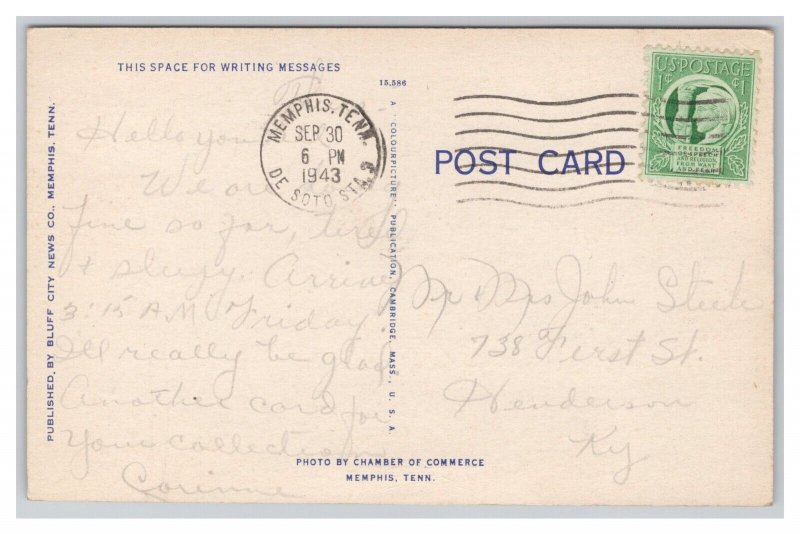 THIS SPACE FOR WRITING MESSAGES
15,586
PUBLISHED BY BLUFF CITY NEWS CO., MEMPHIS, TENN.
A "COLOURPICTURE" PUBLICATION, CAMBRIDGE, MASS., U.S.A.
MEMPHIS, TENN.
SEP 30
6 PM
1943
DE SOTO STA.
U.S. POSTAGE
1¢ 1¢
FREEDOM
OF SPEECH
AND RELIGION,
FROM WANT
AND FEAR
POST CARD
Hello you
We are
fine so far, tired
+ sleepy. Arrive
3:15 A.M. Friday.
I'll really be glad
Another card for
your collection
Corinne
Mr Mrs John Steele
738 First St.
Henderson
Ky
PHOTO BY CHAMBER OF COMMERCE
MEMPHIS, TENN.